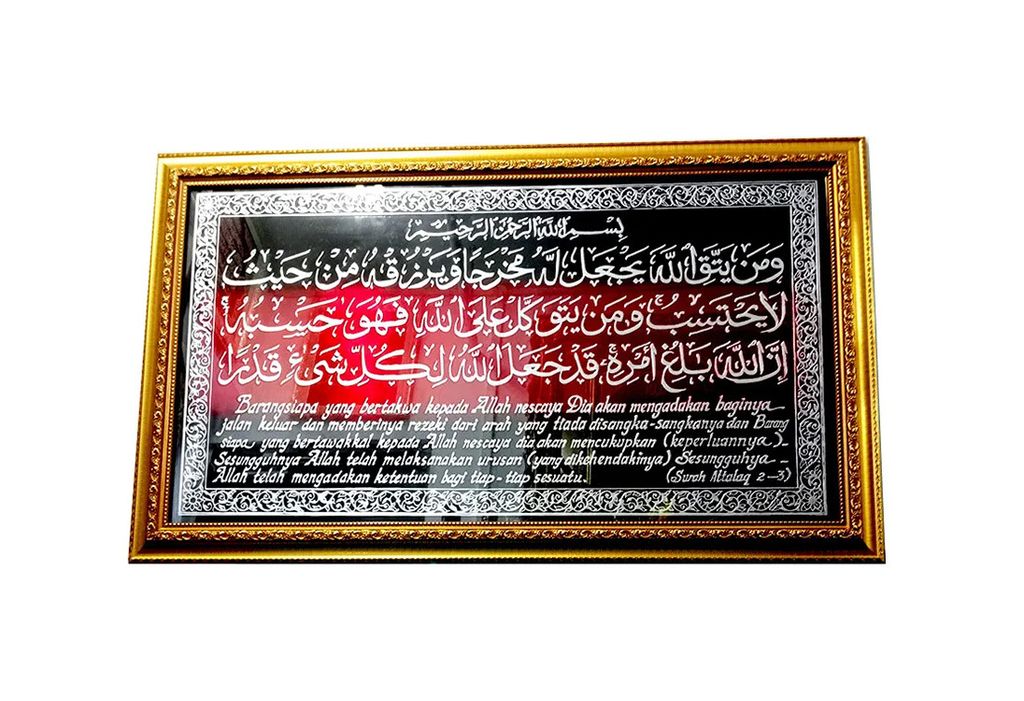 بِسْمِ اللَّهِ الرَّحْمَنِ الرَّحِيمِ
وَمَن يَتَّقِ اللَّهَ يَجْعَل لَّهُ مَخْرَجًا وَيَرْزُقْهُ مِنْ حَيْثُ
لَا يَحْتَسِبُ ۚ وَمَن يَتَوَكَّلْ عَلَى اللَّهِ فَهُوَ حَسْبُهُ ۚ
إِنَّ اللَّهَ بَالِغُ أَمْرِهِ ۚ قَدْ جَعَلَ اللَّهُ لِكُلِّ شَيْءٍ قَدْرًا
Barangsiapa yang bertakwa kepada Allah nescaya Dia akan mengadakan baginya
jalan keluar dan memberinya rezeki dari arah yang tiada disangka-sangkanya dan Barang
siapa yang bertawakkal kepada Allah nescaya dia akan mencukupkan (keperluannya)
Sesungguhnya Allah telah melaksanakan urusan (yang dikehendakinya) Sesungguhya
Allah telah mengadakan ketentuan bagi tiap-tiap sesuatu. (Surah Attalaq 2-3)